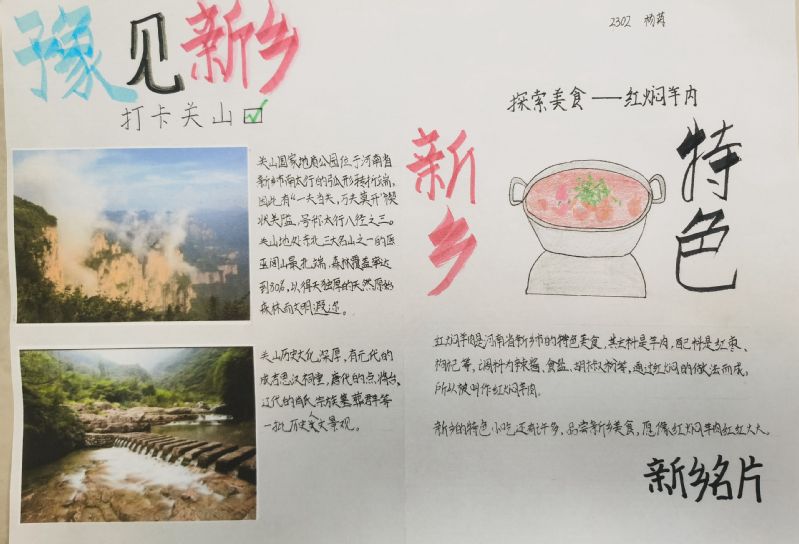 2302 杨茜
豫见新乡
打卡关山
关山国家地质公园位于河南省
新乡市南太行的弧形转折端,
因此有“一夫当关,万夫莫开”
状关隘,号称太行八陉之三。
关山地处
巫闾山最北端,森林覆盖率达
到80%,以得天独厚的天然原始
森林而文明遐迩。
关山历史文化深厚,有元代的
成吉思汗祠堂,唐代的点将台,
辽代的 氏宗族墓葬群等
一批历史人文景观。
探索美食——红焖羊肉
新乡
特色
红焖羊肉是河南省新乡市的特色美食,其主料是羊肉,配料是红枣、
枸杞等,调料为辣酱、食盐、胡椒粉等,通过红焖的做法而成,
所以被叫作红焖羊肉。
新乡的特色小吃还有许多,品尝新乡美食,愿像红焖羊肉红红火火。
新乡名片